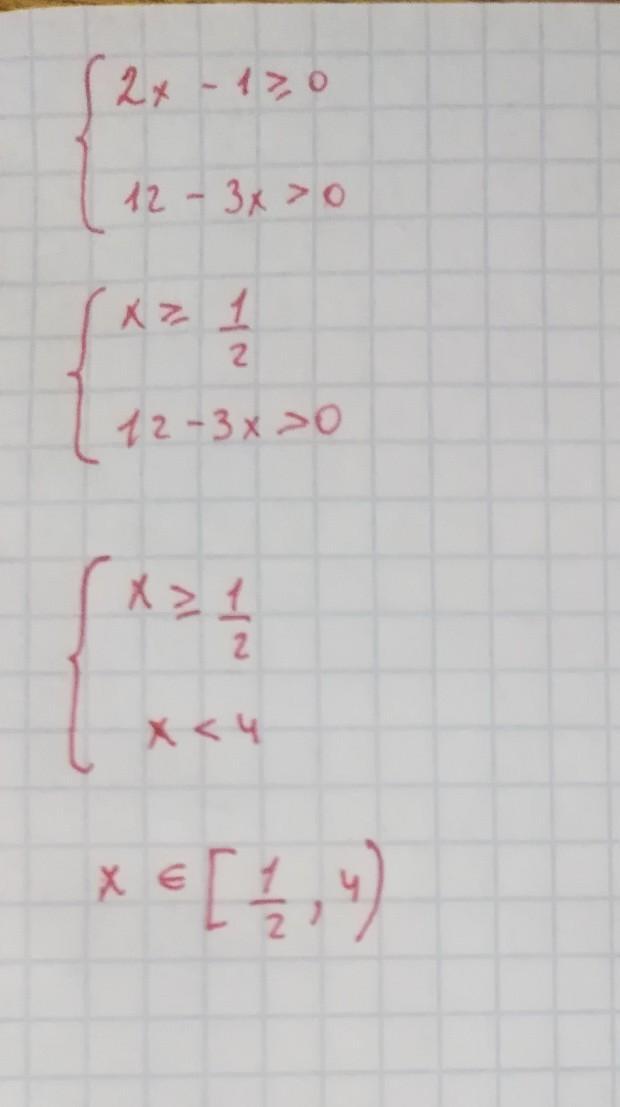 2x - 1 ≥ 0
12 - 3x > 0
x ≥ 1/2
12 - 3x > 0
x ≥ 1/2
x < 4
x ∈ [1/2, 4)